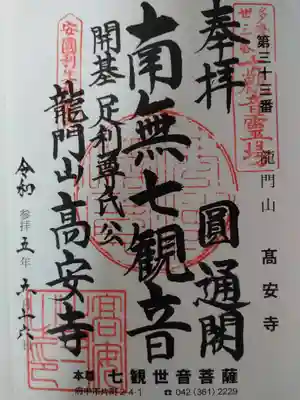 第三十三番 龍門山 高安寺
奉拝 圓通閣
南無七観音
開基 足利尊氏公
龍門山高安寺
令和五年 五、十六
参拝
本尊 七観世音菩薩
府中市片町2-4-1 ☎ 042 (361) 2229